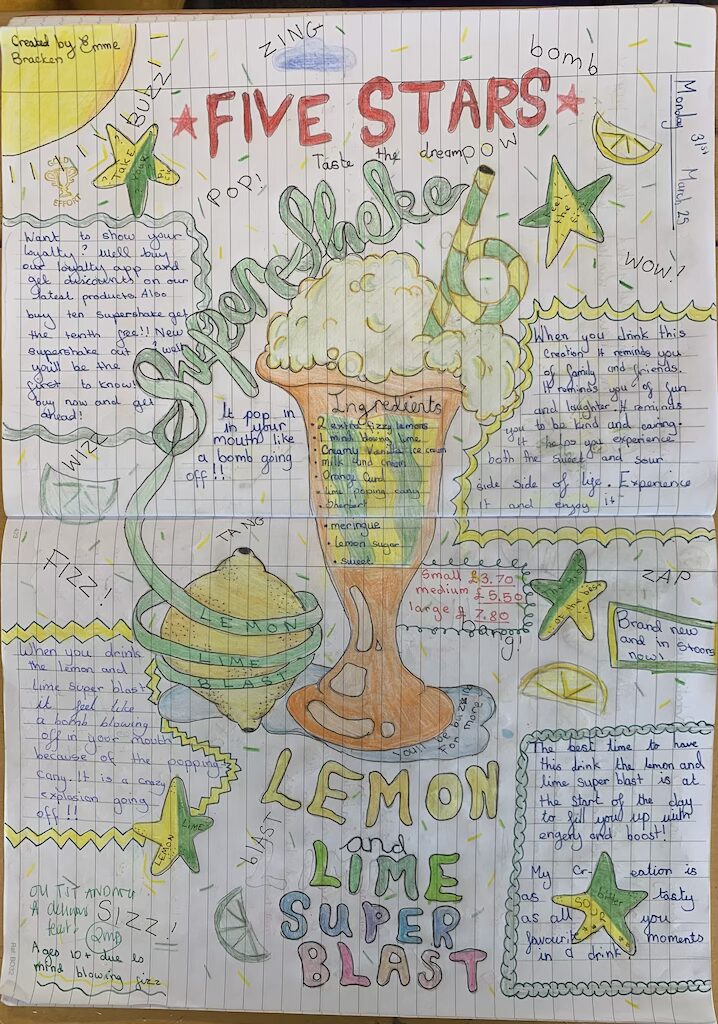 Created by Emme
Bracken
ZING
bomb
BUZZ
★FIVE STARS★
Monday 31st March 25
Taste the dream
POW
TAKE
Your
GOLD
EFFORT
POP!
Supershake
Feel
the
WOW!
Want to show your
loyalty? Well buy
our loyalty app and
get discounts on our
latest products. Also
buy ten supershake get
the tenth free!! New
supershake out? well
youll be the
first to know!
buy now and get
ahead!
When you drink this
creation it reminds you
of family and friends.
It reminds you of fun
and laughter. It reminds
you to be kind and caring.
It helps you experience
both the sweet and sour
side side of life. Experience
it and enjoy it
It pop in
in your
mouth like
a bomb going
off!!
Ingredients
• 2 extra fizzy lemons
• 1 mind blowing lime
• Creamy Vanilla ice cream
• Milk and Cream
• Orange Curd
• lime poping cany
• Sherbert
• meringue
• Lemon sugar
• sweet
WIZZ
TANG
FIZZ!
Small £3.70
medium £5.50
large £7.80
Bang!
ZAP
Brand new
and in Stoors
now!
of the best
LEMON
LIME
BLAST
When you drink
the lemon and
lime super blast
it feel like
a bomb blowing
off in your mouth
because of the popping
cany. It is a crazy
explosion going
off!!
You'll be buzzin
for more!
The best time to have
this drink the lemon and
lime super blast is at
the start of the day
to fill you up with
engery and boost!
LEMON
LIME
LEMON
and
LIME
SUPER
BLAST
BLAST
My Creation is
as tasty
as all you
favourite moments
in a drink
SOUR
bitter
A delivous
SIZZ!
Ages 10+ due to
mind blowing fizz